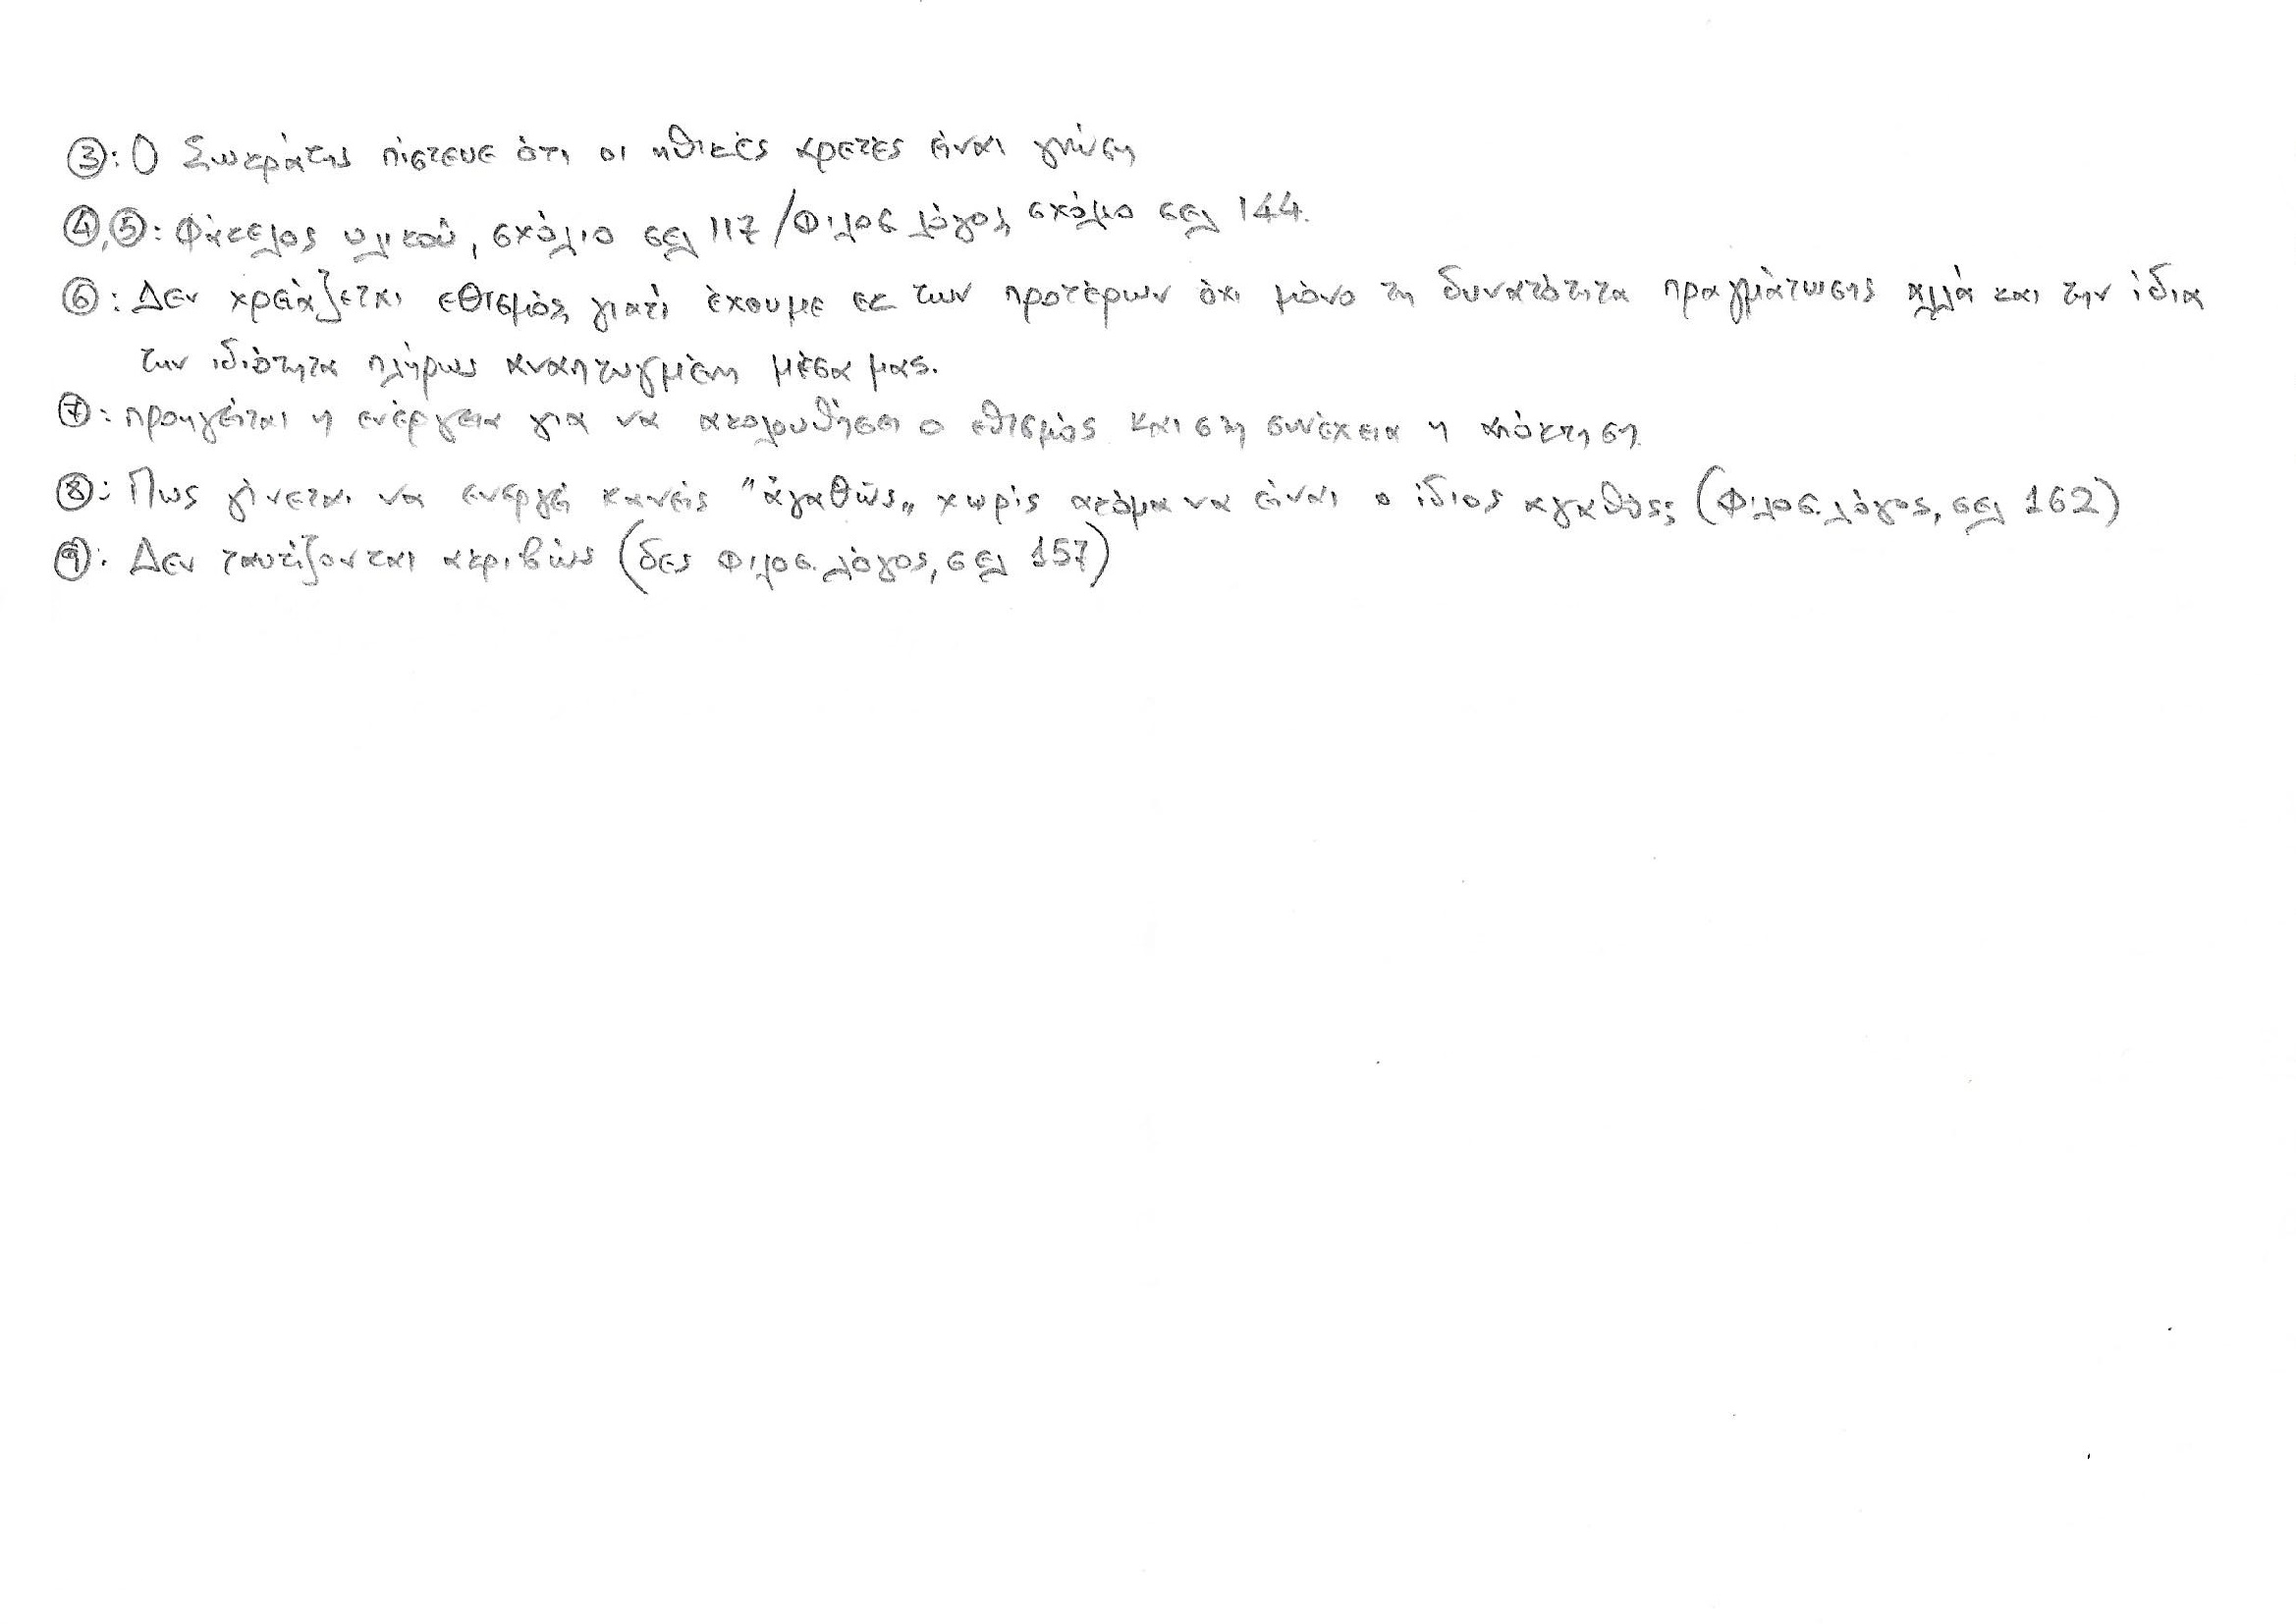 ③: Ο Σωκράτης πίστευε ότι οι ηθικές αρετές είναι γνώση
④,⑤: Φάκελος υλικού, σχόλιο σελ 117 / Φιλοσ. λόγος, σχόλιο σελ 144.
⑥: Δεν χρειάζεται εθισμός, γιατί έχουμε εκ των προτέρων όχι μόνο τη δυνατότητα πραγμάτωσης αλλά και την ίδια
την ιδιότητα πλήρως αναπτυγμένη μέσα μας.
⑦: προηγείται η ενέργεια για να ακολουθήσει ο εθισμός και στη συνέχεια η απόκτηση.
⑧: Πως γίνεται να ενεργεί κανείς "ἀγαθῶς„ χωρίς ακόμα να είναι ο ίδιος αγαθός; (Φιλοσ. λόγος, σελ 162)
⑨: Δεν ταυτίζονται ακριβώς (δες Φιλοσ. λόγος, σελ 157)